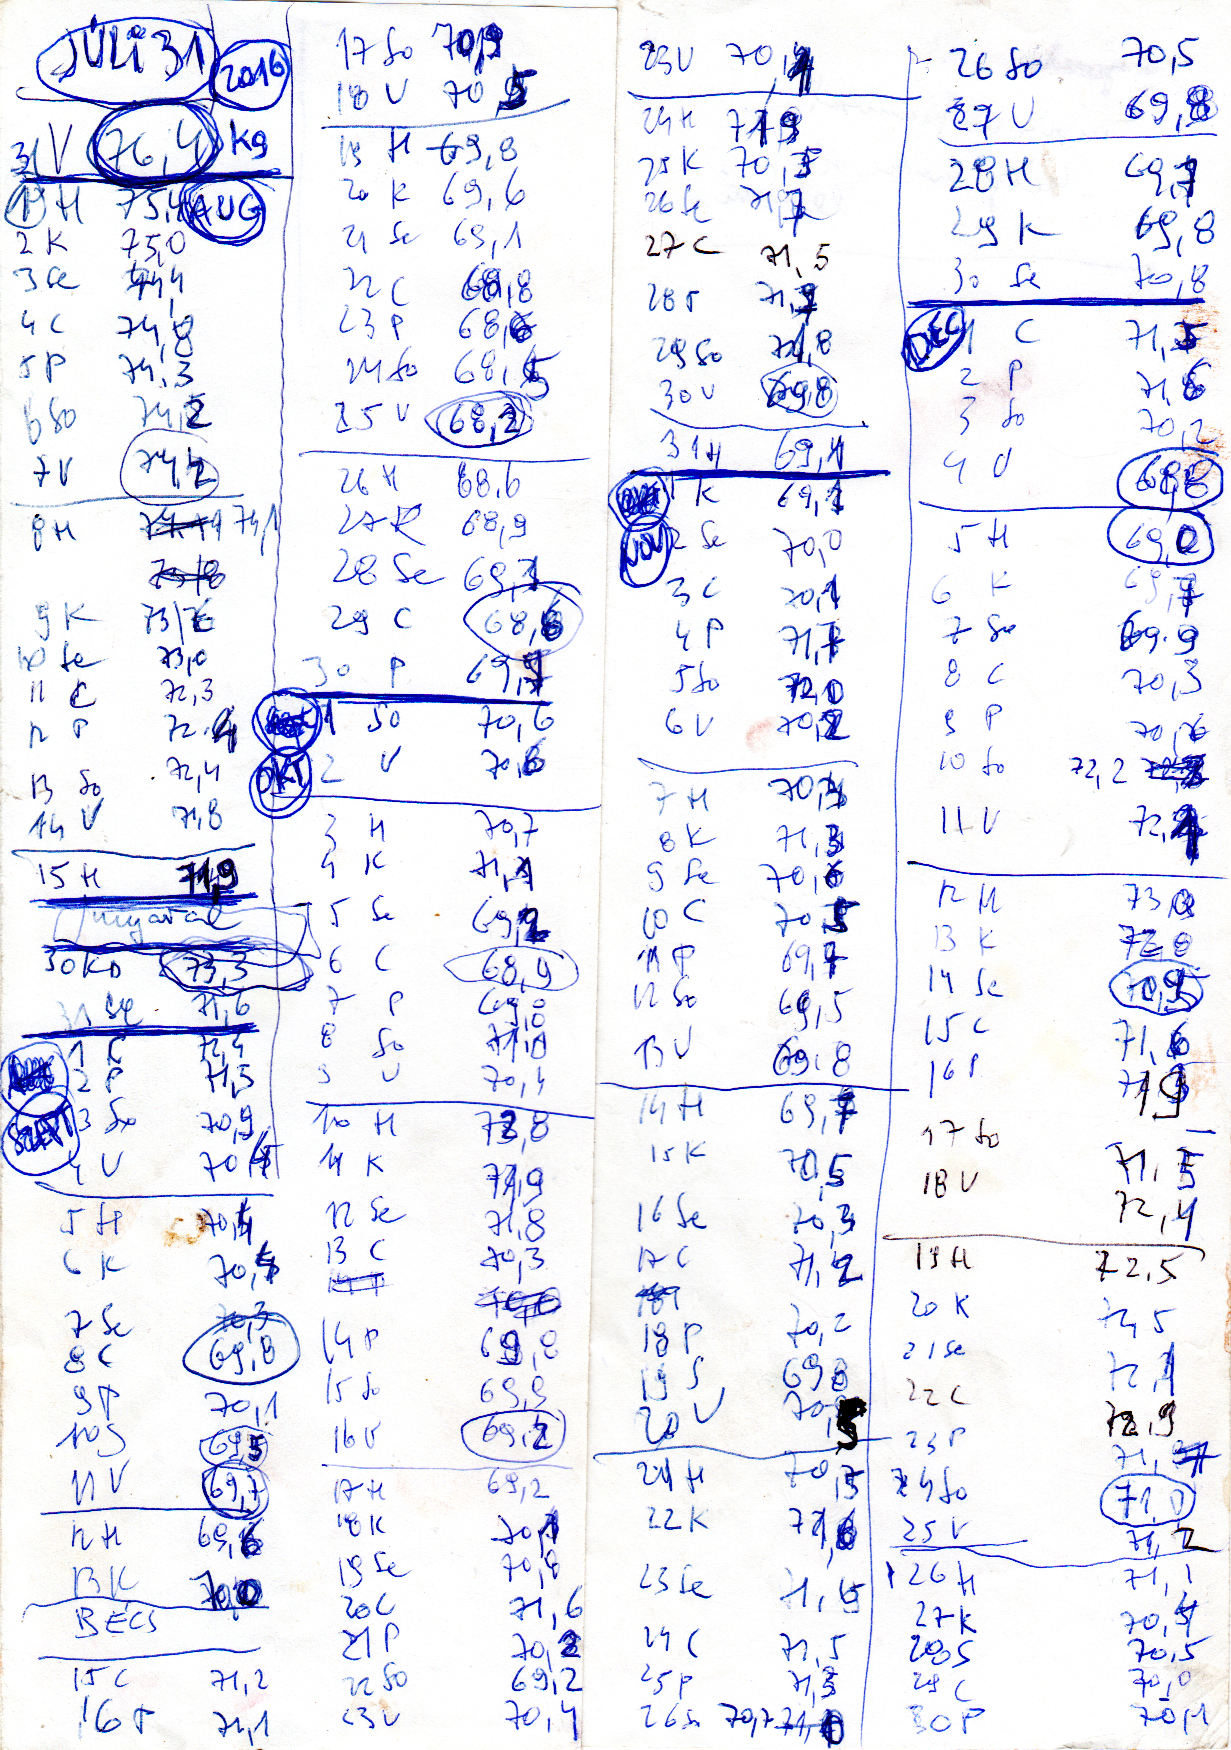 JÚLI 31 2016
31 V 76,4 kg
1 H 75,4 AUG
2 K 75,0
3 Se 74,4
4 C 74,8
5 P 74,3
6 So 74,2
7 V 74,2
8 H 74,1
9 K
10 Se 73,0
11 C 72,3
12 P 72,4
13 So 72,4
14 V 71,8
15 H 71,9
nyaral
30 K 73,3
31 Se 71,6
1 C 72,4
2 P 71,5
SZEPT 3 So 70,9
4 V 70,4
5 H 70,4
6 K 70,4
7 Se 70,3
8 C 69,8
9 P 70,1
10 S 69,5
11 V 69,7
12 H 69,6
13 K 70,0
BÉCS
15 C 71,2
16 P 71,1
17 So 70,9
18 V 70,5
19 H 69,8
20 K 69,6
21 Se 69,1
22 C 68,8
23 P 68,6
24 So 68,5
25 V 68,2
26 H 68,6
27 K 68,9
28 Se 69,1
29 C 68,6
30 P 69,7
1 So 70,6
OKT 2 V 70,6
3 H 70,7
4 K 71,1
5 Se 69,2
6 C 68,9
7 P 69,8
8 So 71,0
9 V 70,4
10 H 72,8
11 K 71,9
12 Se 71,8
13 C 70,3
14 P 69,8
15 So 69,9
16 V 69,2
17 H 69,2
18 K 70,1
19 Se 70,8
20 C 71,6
21 P 70,2
22 So 69,2
23 V 70,4
23 V 70,4
24 H 71,9
25 K 70,5
26 Se 71,7
27 C 71,5
28 P 71,7
29 So 71,8
30 V 69,8
31 H 69,1
1 K 69,1
NOV 2 Se 70,0
3 C 70,1
4 P 71,1
5 So 72,0
6 V 70,2
7 H 70,4
8 K 71,3
9 Se 70,6
10 C 70,5
11 P 69,7
12 So 69,5
13 V 69,8
14 H 69,7
15 K 70,5
16 Se 70,3
17 C 71,2
18 P 70,2
19 S 69,8
20 V 70,5
21 H 70,5
22 K 71,6
23 Se 71,5
24 C 71,5
25 P 71,3
26 So 70,7
26 So 70,5
27 V 69,8
28 H 69,7
29 K 69,8
30 Se 70,8
DEC 1 C 71,5
2 P 71,6
3 So 70,2
4 V 68,8
5 H 69,0
6 K 69,7
7 Se 69,9
8 C 70,3
9 P 70,6
10 So 72,2
11 V 72,1
12 H 73,0
13 K 72,8
14 Se 70,5
15 C 71,6
16 P
17 So
71,5
18 V
72,4
19 H 72,5
20 K
21 Se 72,1
22 C 72,9
23 P
24 So 71,0
25 V 71,2
26 H 71,1
27 K 70,4
28 S 70,5
29 C 70,0
30 P 70,1